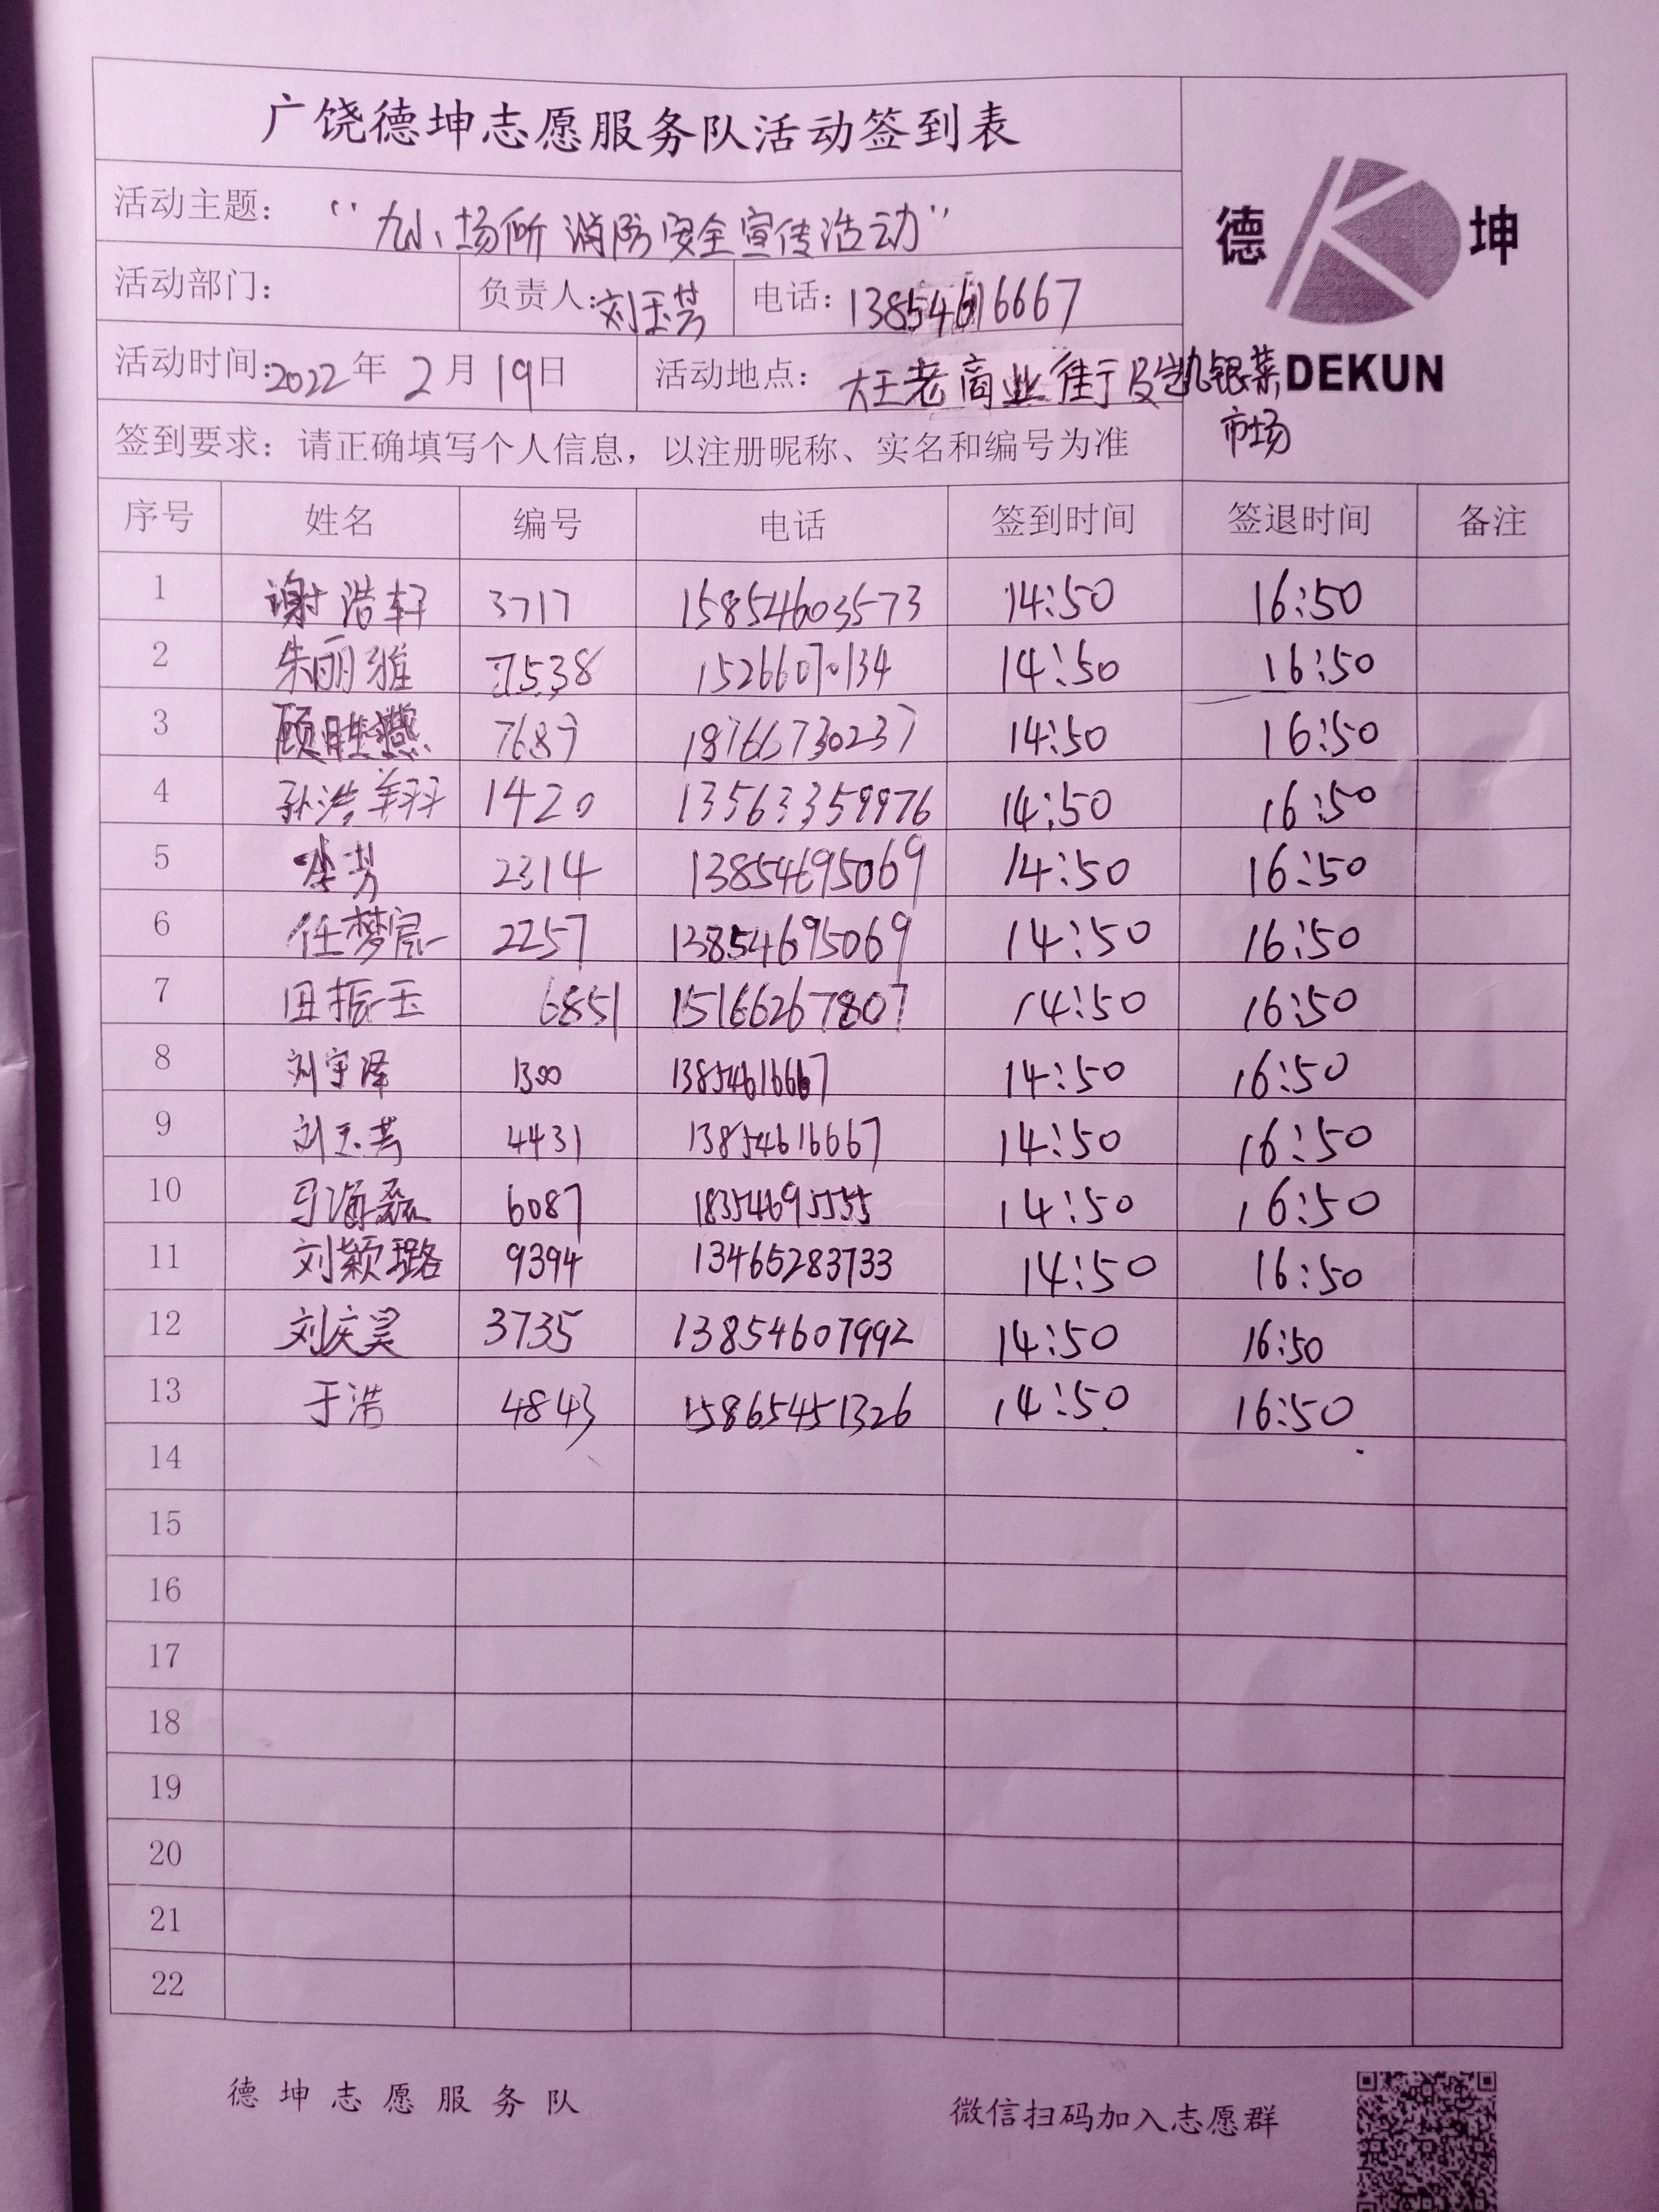 广饶德坤志愿服务队活动签到表
活动主题：“九小场所消防安全宣传活动”
德 坤
活动部门： 负责人：刘玉芳 电话：13854616667
活动时间：2022年2月19日 活动地点：大王老商业街及凯银菜
DEKUN
市场
签到要求：请正确填写个人信息，以注册昵称、实名和编号为准
序号 姓名 编号 电话 签到时间 签退时间 备注
1 谢浩轩 3717 15854603573 14:50 16:50
2 朱丽雅 7538 15266070134 14:50 16:50
3 顾胜燕 7687 18766730237 14:50 16:50
4 孙浩翔 1420 13563359976 14:50 16:50
5 李芳 2314 13854695069 14:50 16:50
6 任梦宸 2257 13854695069 14:50 16:50
7 田振玉 6851 15166267807 14:50 16:50
8 刘宇泽 1300 13854616667 14:50 16:50
9 刘玉芳 4431 13854616667 14:50 16:50
10 马海磊 6087 18354695555 14:50 16:50
11 刘颖璐 9394 13465283733 14:50 16:50
12 刘庆昊 3735 13854607992 14:50 16:50
13 于浩 4843 15865451326 14:50 16:50
14
15
16
17
18
19
20
21
22
德坤志愿服务队 微信扫码加入志愿群